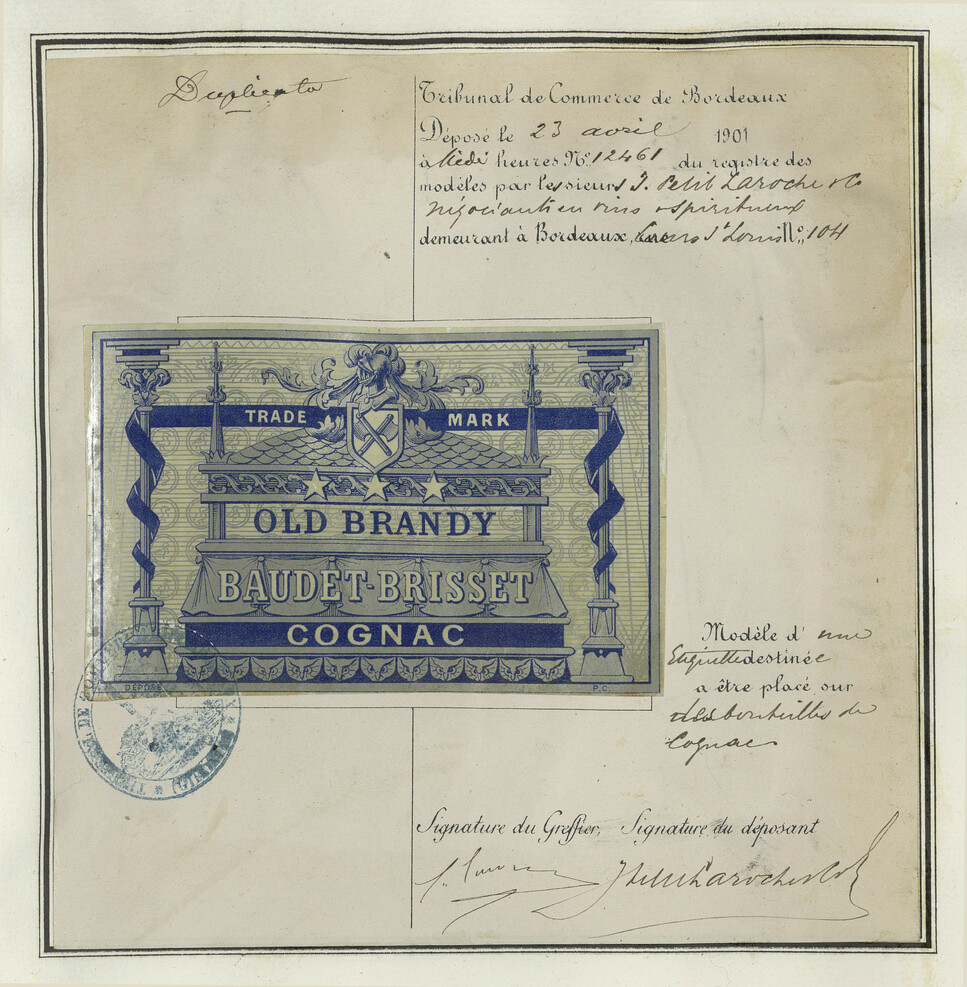 Duplicata
Tribunal de Commerce de Bordeaux
Déposé le 23 avril 1901
à Midi heures No. 12461 du registre des
modèles par les sieurs J. Petit Laroche & Co
négociants en vins & spiritueux
demeurant à Bordeaux, Cours St Louis No. 104
TRADE MARK
OLD BRANDY
BAUDET-BRISSET
COGNAC
DÉPOSÉ
P.C.
Modèle d' une
Etiquette destinée
a être placé sur
des bouteilles de
Cognac
Signature du Greffier, Signature du déposant
J Petit Laroche & Co